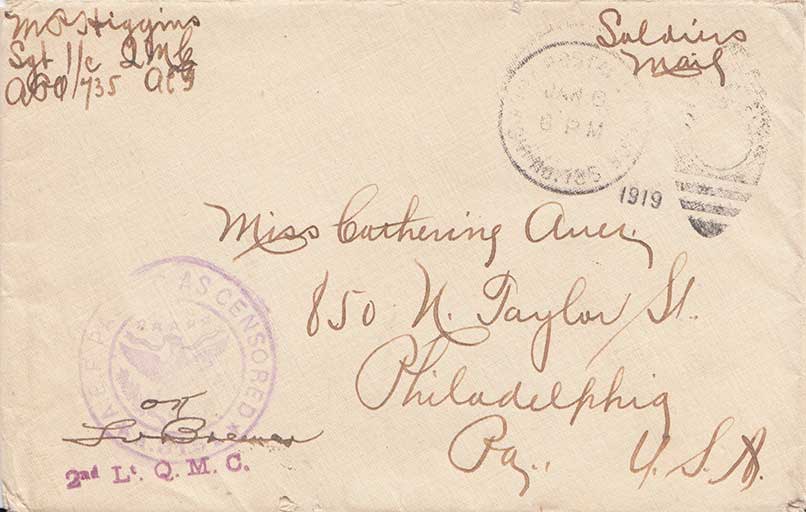 M P Higgins
Sgt 1/c Q M C
APO 735 AEF
Soldiers
Mail
POSTAL
JAN 6
6 P M
No. 735
1919
Miss Catherine
850 N. Taylor St.
Philadelphia
Pa., U.S.A.
PASSED AS CENSORED
OK
2nd Lt. Q. M. C.